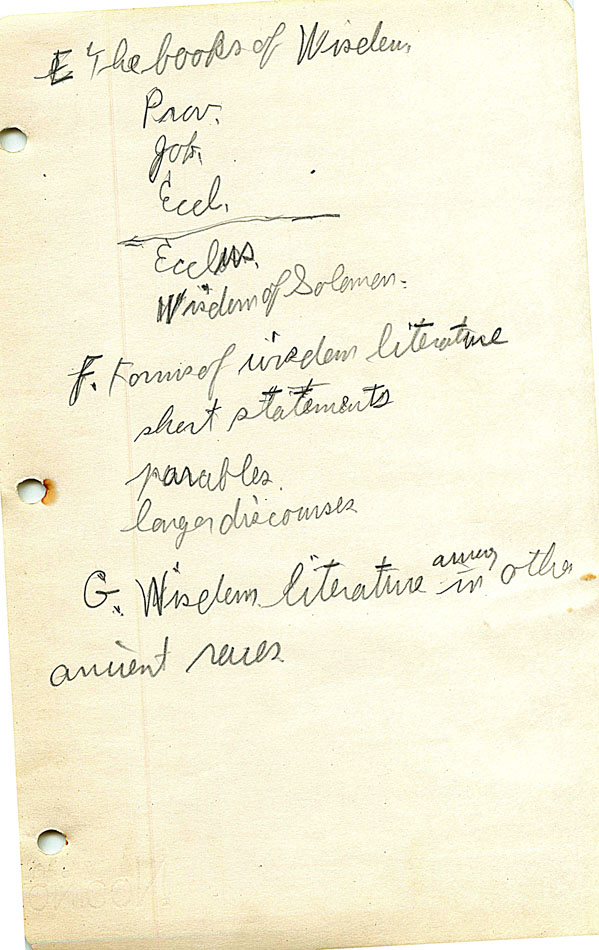 E The books of Wisdom
Prov.
Job.
Eccl.
Ecclus.
Wisdom of Solomon.
F. Forms of wisdom literature
short statements
parables.
longer discourses
G. Wisdom literature among in other
ancient races